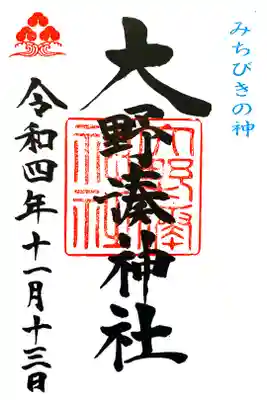 みちびきの神
大野湊神社
令和四年十一月十三日
大野湊神社